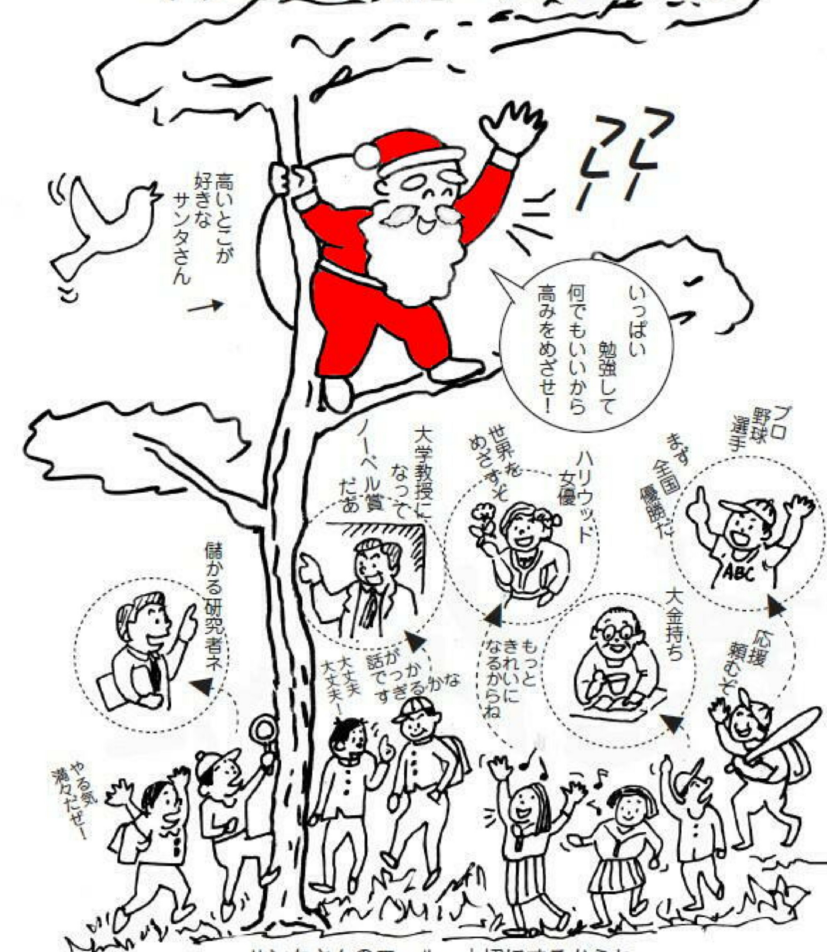 フレー
フレー
高いとこが
好きな
サンタさん
いっぱい
勉強して
何でもいいから
高みをめざせ!
プロ
野球
選手
まず
全国
優勝だ
ハリウッド
女優
世界を
めざすぞ
大学教授に
なって
ノーベル賞
だあ
儲かる研究者ネ
大金持ち
応援
頼むぞ
もっと
きれいに
なるからね
話がでっか
すぎるかな
大丈夫
大丈夫!
やる気
満々だぜ!
ABC